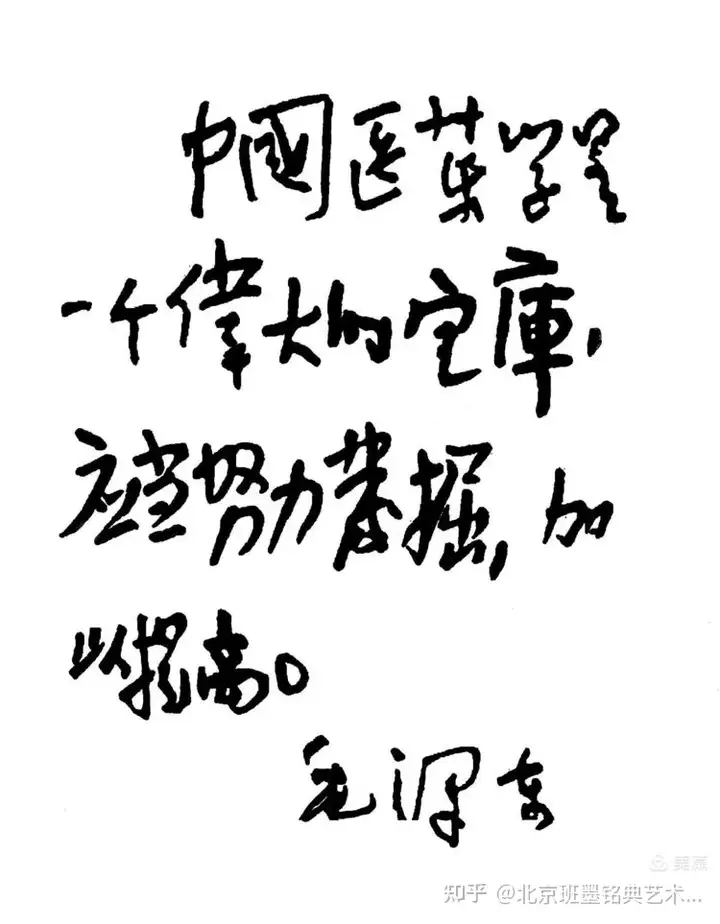 中國医药学是
一个偉大的宝庫，
应当努力発掘，加
以提高。
毛泽东
美篇
知乎 @北京班墨铭典艺术...